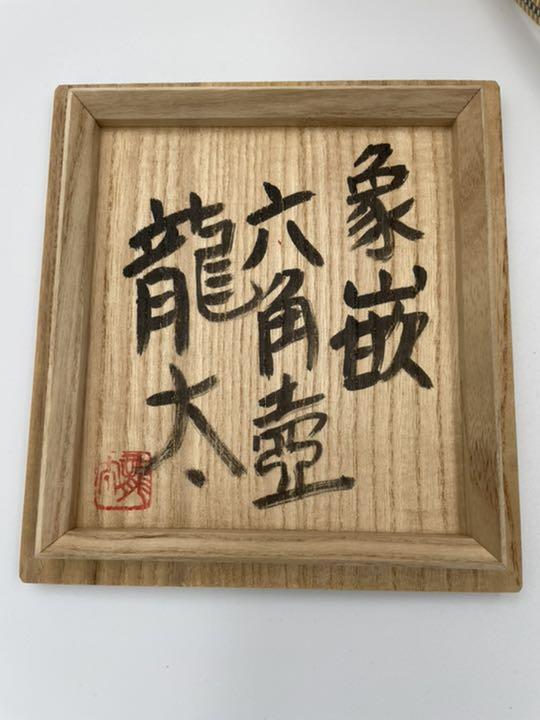 象嵌
六角壺
龍太